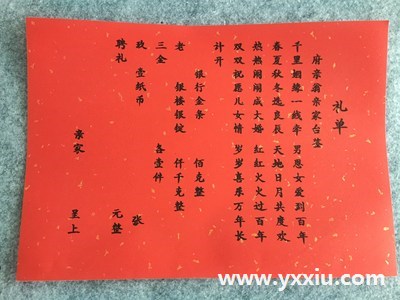 礼单
府亲翁亲家台鉴
千里姻缘一线牵 男恩女爱到百年
春夏秋冬选良辰 天地日月共度欢
热热闹闹成大婚 红红火火过百年
双双祝愿儿女情 岁岁喜乐万年长
计开
银行金条 佰克整
老 银楼银锭 仟千克整
三金 各壹件
玖 壹纸币 张
聘礼 元整
亲家 呈上
www.yxxiu.com